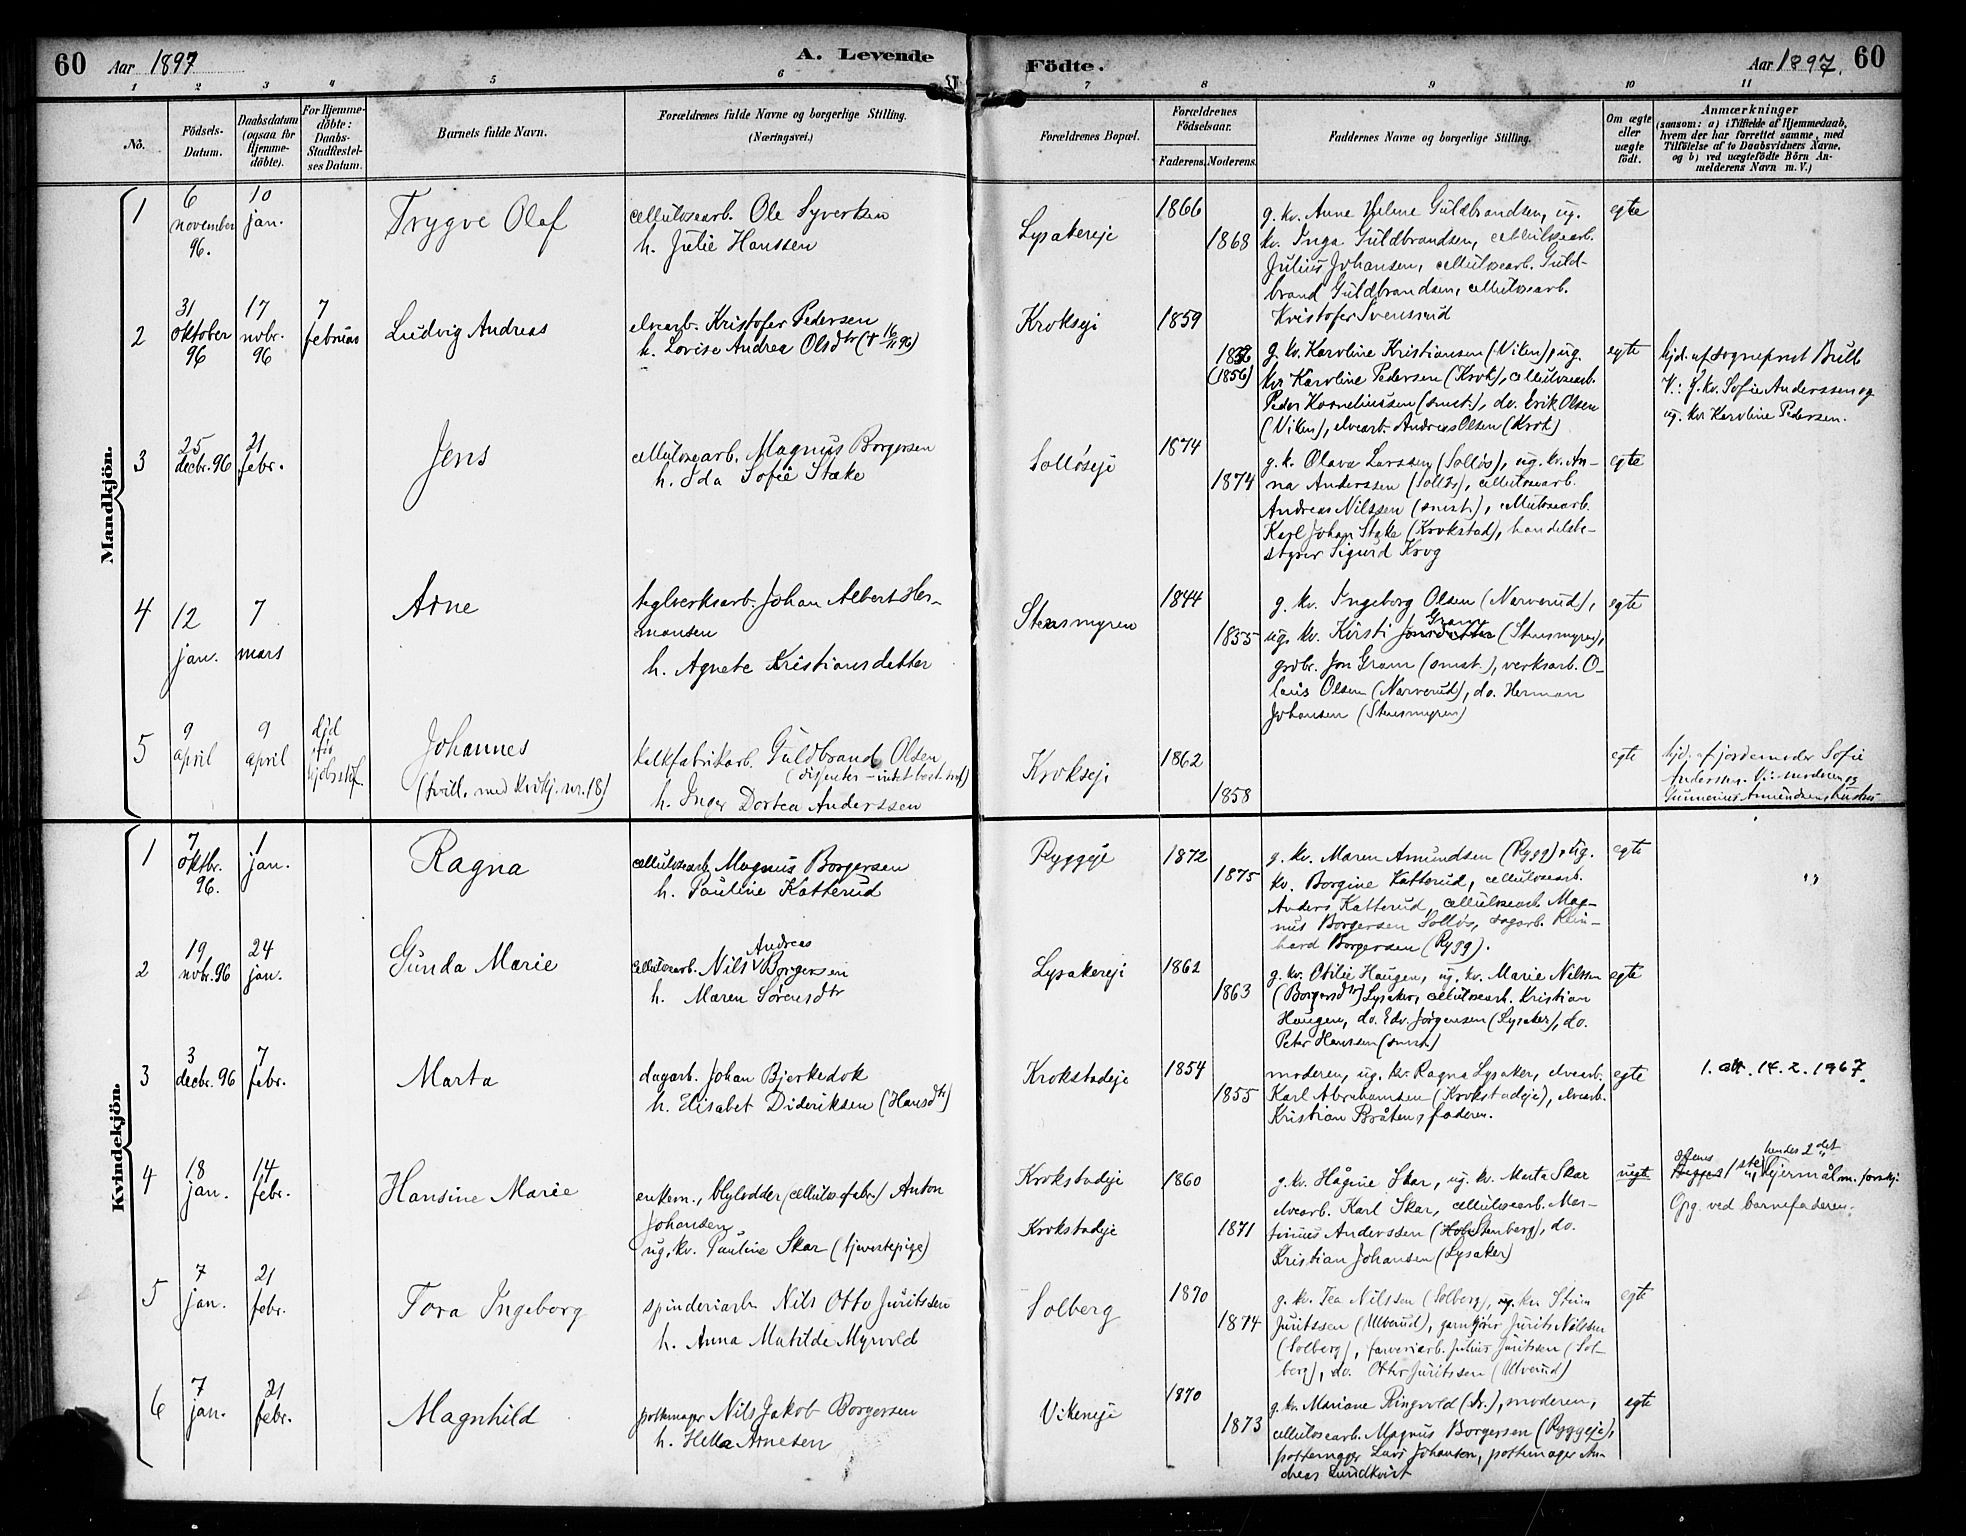 60 Aar 1897 A. Levende Födte. Aar 1897. 60
1 2 3 4 5 6 7 8 9 10 11
No.
Födsels-Datum.
Daabsdatum (ogsaa for Hjemme-döbte).
For Hjemme-döbte: Daabs-Stadfæstel-ses Datum.
Barnets fulde Navn.
Forældrenes fulde Navne og borgerlige Stilling. (Næringsvei.)
Forældrenes Bopæl.
Forældrenes Födselsaar.
Faderens. Moderens.
Faddernes Navne og borgerlige Stilling.
Om ægte eller uægte födt.
Anmærkninger
(saasom: a) i Tilfælde af Hjemmedaab,
hvem der har forrettet samme, med
Tilföielse af to Daabsvidners Navne,
og b) ved uægtefödte Börn An-
melderens Navn m. V.)
Mandkjön.
1
6 november 96.
10 jan.
Trygve Olaf
cellulosearb. Ole Syvertsen
h. Julie Hanssen
Lysakereje
1866
1868
g. kv. Anne Helene Guldbrandsen, ug.
kv. Inga Guldbrandsen, cellulosearb.
Julius Johansen, cellulosearb. Guld-
brand Guldbrandsen, cellulosearb.
Kristofer Svensrud
egte
2
31 oktober 96
17 novbr. 96
7 februar
Ludvig Andreas
elvearb. Kristofer Pedersen
h. Lovise Andrea Olsdtr († 16/11 96)
Krokseje
1859
(1856)
g. kv. Karoline Kristiansen (Viken), ug.
kv. Karoline Pedersen (Krok), cellulosearb.
Peder Korneliussen (smst.), do. Erik Olsen
(Viken), elvearb. Andreas Olsen (Krok)
egte
hjd. af sogneprest Bull
V.: g. kv. Sofie Anderssen og
ug. kv. Karoline Pedersen.
3
25 decbr. 96
21 febr.
Jens
cellulosearb. Magnus Borgersen
h. Ida Sofie Stake
Solløseje
1874
1874
g. k. Olava Larssen (Solløs), ug. kv. An-
na Anderssen (Solløs), cellulosearb.
Andreas Nilssen (smst.), cellulosearb.
Karl Johan Stake (Krokstad), handelsbe-
styrer Sigurd Krog
egte
4
12 jan.
7 mars
Arne
teglverksarb. Johan Albert Her-
mansen
h. Agnete Kristiansdatter
Stensmyren
1844
1855
g. kv. Ingeborg Olsen (Narverud),
ug. kv. Kirsti Jonsdatter Gram (Stensmyren),
grdbr. Jon Gram (smst.), verksarb. O-
laus Olsen (Narverud), do. Herman
Johansen (Stensmyren)
egte
5
9 april
9 april
død før
Johannes
(tvill. med kvikj. nr. 18)
kalkfabrikarb. Guldbrand Olsen
h. Inger Dortea Anderssen
Krokseje
1862
1858
egte
hjd. af jordemoder Sofie
Anderssen. V.: moderen og
Gunnerius Amundsen,
Kvindekjön.
1
7 oktbr. 96.
1 jan.
Ragna
cellulosearb. Magnus Borgersen
h. Pauline Katterud
Ryggeje
1872
1875
g. kv. Maren Amundsen (Rygg), ug.
kv. Borgine Katterud, cellulosearb.
Anders Katterud, cellulosearb. Mag-
nus Borgersen Solløs, dagarb. Rein-
hard Borgersen (Rygg).
egte
2
19 novbr. 96
24 jan.
Gunda Marie
cellulosearb. Nils Andreas Borgersen
h. Maren Sørensdtr
Lysakereje
1862
1863
g. kv. Otilie Haugen, ug. kv. Marie Nilssen
(Borgersdtr) Lysaker, cellulosearb. Kristian
Haugen, do. Edv. Jørgensen (Lysaker), do.
Peter Hanssen (smst.)
egte
3
3 decbr. 96
7 febr.
Marta
dagarb. Johan Bjerkedok
h. Elisabet Dideriksen (Hansdtr)
Krokstadeje
1854
1855
moderen, ug. kv. Ragna Lysaker, elvearb.
Karl Abrahamsen (Krokstadeje), elvearb.
Kristian Bråten, faderen.
egte
1. att. 14.2.1967.
4
18 jan.
14 febr.
Hansine Marie
enkem., blylodder (cellulosefabr.) Anton
Johansen
ug. kv. Pauline Skar (tjenestepige)
Krokstadeje
Krokstadeje
1860
1871
g. kv. Hågine Skar, ug. kv. Marta Skar
elvearb. Karl Skar, cellulosearb. Mar-
tinius Anderssen (Stenberg), do.
Kristian Johansen (Lysaker)
uegte
1ste, hendes 2det
lejermål m. forskj.
Opg. ved barnefaderen.
5
7 jan.
21 febr.
Tora Ingeborg
spinderiarb. Nils Otto Juritssen
h. Anna Matilde Myrvold
Solberg
1870
1874
g. kv. Tea Nilssen (Solberg), ug. kv. Stina
Juritssen (Ulverud), garnfører Jurits Nilssen
(Solberg), farveriarb. Julius Juritssen (Sol-
berg), do. Otto Juritssen (Ulverud)
egte
6
7 jan.
21 febr.
Magnhild
pottemager Nils Jakob Borgersen
h. Hella Arnesen
Vikeneje
1870
1873
g. kv. Mariane Ringvold (Dr.), moderen,
cellulosearb. Magnus Borgersen (Ryggeje),
pottemager Lars Johansen, pottemager An-
dreas Lundkvist
egte